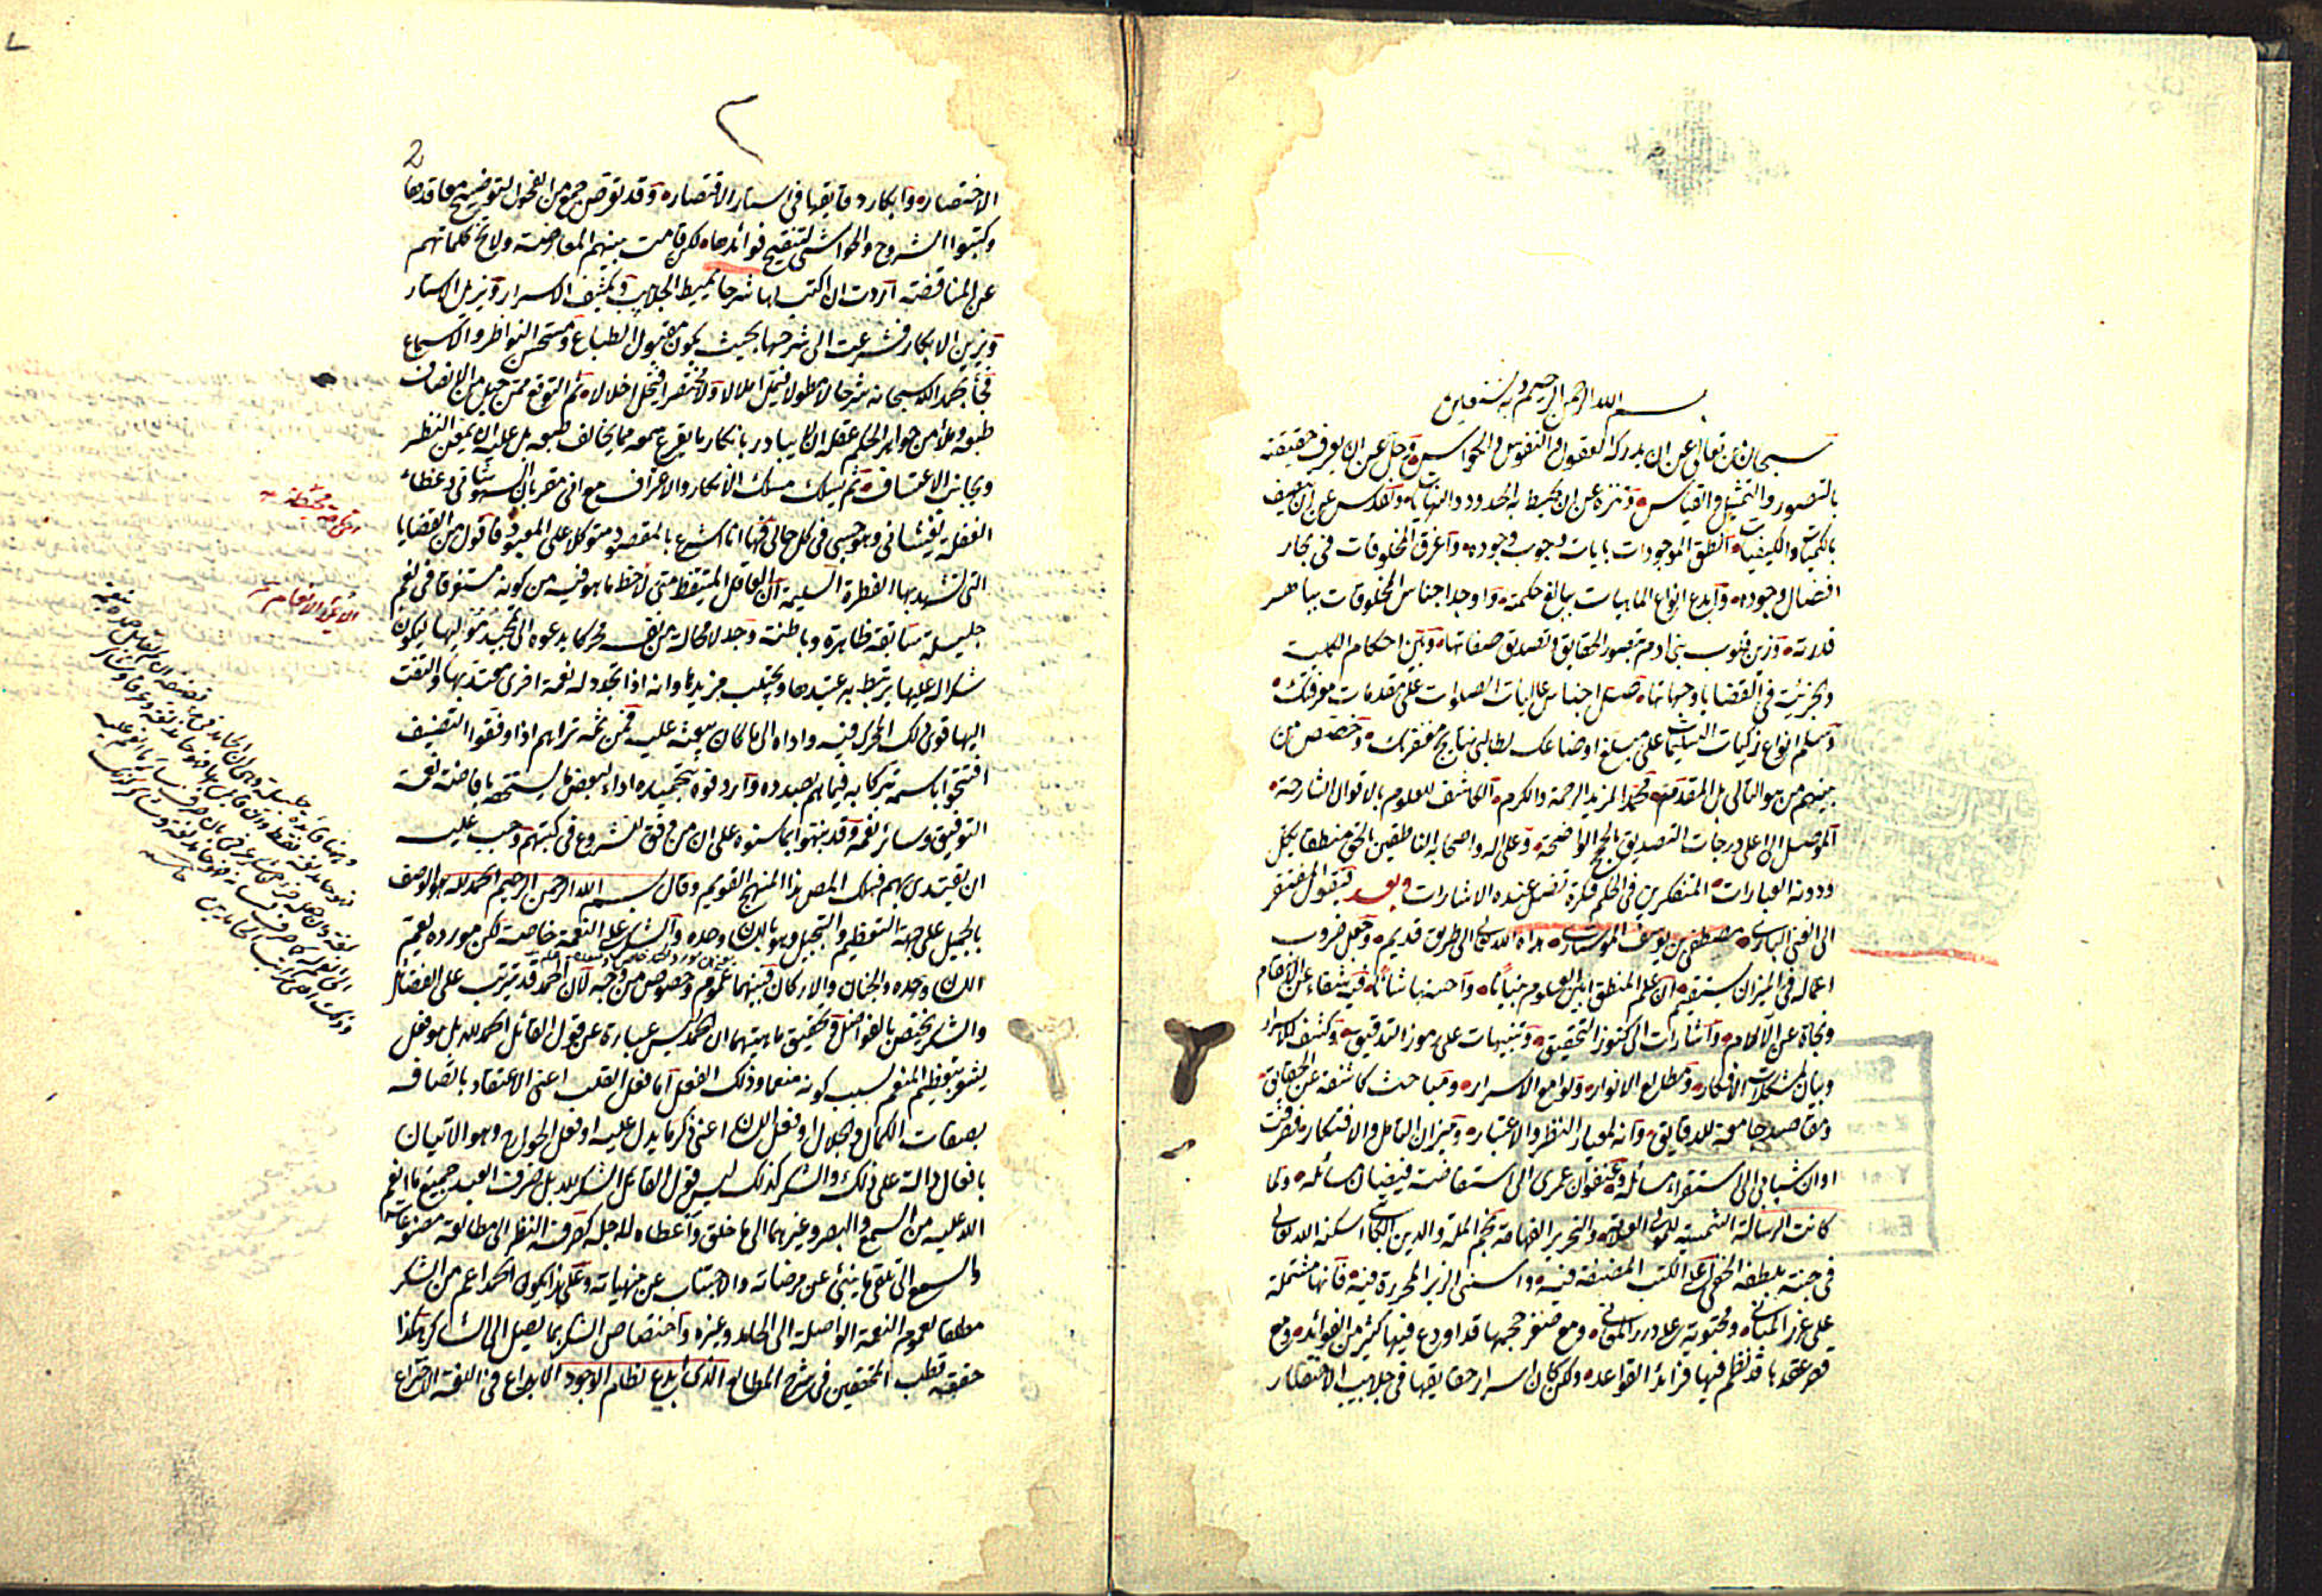 بسم الله الرحمن الرحيم وبه نستعين
سبحان من تعالى عن ان يدركه العقول والنفوس والحواس وجل عن ان يعرف حقيقته
بالتصور والتمثيل والقياس وتنزه عن ان يحيط به الحدود والنهايات وتقدس عن ان يتصف
بالكميات والكيفيات وانطق الموجودات بايات وجوب وجوده واغرق المخلوقات في بحار
افضال وجوده وابدع انواع الماهيات ببالغ حكمته واوجد اجناس المخلوقات بباهر
قدرته وزين قلوب بني ادم بتصور الحقايق وتصديق صفاتها وبين احكام الكلية
والجزئية في القضايا وجهاتها صل اجناس عاليات الصلوات على مقدمات معرفتك
وسلم انواع زكيات التسليمات على مبلغ اوضاعك لطالبي نتايج مغفرتك وخصص من
بينهم من هو التالي بل المقدم محمد المزيد الرحمة والكرم الكاشف للعلوم بالاقوال الشارحة
الموصل الى اعلى درجات التصديق بالحجج الواضحة وعلى اله واصحابه الناطقين بالحق منطقا يكل
دونه العبارات المتفكرين في الحكم فكرة تضل عنده الاشارات وبعد فيقول المفتقر
الى الغني الباري مصطفى بن يوسف الموستاري هداه الله الى طريق قديم وجعل ضروب
اعماله في الميزان مستقيم ان علم المنطق ابين العلوم تبيانا واحسنها شانا فيه شفاء عن الاسقام
ونجاة عن الالام واشارات الى كنوز التحقيق وتنبيهات على رموز التدقيق وكشف للاسرار
وبيان لمشكلات الافكار ومطالع الانوار ولوامع الاسرار ومباحث كاشفة عن الحقايق
ومقاصد جامعة للدقايق وانه لمعيار النظر والاعتبار وميزان التامل والافتكار فصرفت
اوان شبابي الى استقراء مسائله وعنفوان عمري الى استفاضة فيضان سائله ولما
كانت الرسالة الشمسية للمولى العلامة والنحرير الفهامة نجم الملة والدين الكاتبي اسكنه الله تعالى
في جنة بلطفه الخفي اعلى الكتب المصنفة فيه واسنى الزبر المحررة فيه فانها مشتملة
على غرر المباني ومحتوية على درر المعاني ومع صغر حجمها قد اودع فيها كثير من الفوائد ومع
قصر عقدها قد نظم فيها فرائد القواعد ولكن كان اسرار حقايقها في جلابيب الاختصار
2
الاختصار وابكار دقايقها في استار الاقتصار وقد تعرض جمع من الفحول لتوضيح معاقدها
وكتبوا الشروح والحواشي لتنقيح فوائدها لكن قامت بينهم المعارضة ولا تخ كلماتهم
عن المناقضة اردت ان اكتب لها شرحا يميط الجلابيب ويكشف الاسرار ويزيل الاستار
ويزين الابكار فشرعت الى شرحها بحيث يكون مقبول الطباع ومستحسن النواظر والاسماع
فجاء بحمد الله سبحانه شرحا لا مطولا فيمل املالا ولا مختصرا فيخل اخلالا ثم التوقع ممن جبل من الانصاف
طبعه وملأ من جواهر الحكم عقله ان لا يبادر بانكار ما يقرع سمعه مما يخالف طبعه بل عليه ان يمعن النظر
ويجانب الاعتساف ثم ليسلك مسلك الانكار والاعتراف مع اني مقر بان السهو شاني وغطاء
الغفلة يغشاني وهو حسبي في كل حالي فها انا اشرع بالمقصود متوكلا على المعبود فاقول من القضايا
التي تشهد بها الفطرة السليمة ان العاقل المتيقظ متى لاحظ ما هو فيه من كونه مستغرقا في نعم
جليلة سابقة ظاهرة وباطنة وجد لا محالة من نفسه محركا يدعوه الى تمجيد موليها ليكون
شكرا له عليها يرتبط به عتيدها ويجتلب مزيدها وانه اذا تجدد له نعمة اخرى معتد بها والتفت
اليها قوي ذلك المحرك فيه واداه الى ما كان يبعثه عليه فمن ثمه تراهم اذا وفقوا لتصنيف
افتتحوا باسمه تبركا به فيما هم بصدده واردفوه بتحميده اداء لبعض ما يستحقه بافاضة نعمة
التوفيق وسائر نعمه وقد نبهوا بما سنوه على ان من وفق للشروع في كتبهم وجب عليه
ان يقتدي بهم فسلك المص هذا المنهج القويم وقال بسم الله الرحمن الرحيم الحمد لله هو الوصف
بالجميل على جهة التعظيم والتبجيل وهو باللسان وحده والشكر على النعمة خاصة لكن مورده يعم
اللسان وحده والجنان والاركان فبينهما عموم وخصوص من وجه لان الحمد قد يترتب على الفضائل
والشكر يختص بالفواضل وتحقيق ماهيتهما ان الحمد ليس عبارة عن قول القائل الحمد لله بل هو فعل
يشعر بتعظيم المنعم بسبب كونه منعما وذلك الفعل اما فعل القلب اعني الاعتقاد باتصافه
بصفات الكمال والجلال او فعل اللسان اعني ذكر ما يدل عليه او فعل الجوارح وهو الاتيان
بافعال دالة على ذلك والشكر كذلك ليس قول القائل الشكر لله بل صرف العبد جميع ما انعم
الله عليه من السمع والبصر وغيرهما الى ما خلق واعطاه لاجله كصرفه النظر الى مطالعة مصنوعاته
والسمع الى تلقي ما ينبئ عن مرضاته والاجتناب عن منهياته وعلى هذا يكون الحمد اعم من الشكر
مطلقا لعموم النعمة الواصلة الى الحامد وغيره واختصاص الشكر بما يصل الى الشاكر هكذا
حققه قطب المحققين في شرح المطالع الذي ابدع نظام الوجود الابداع في اللغة الاختراع